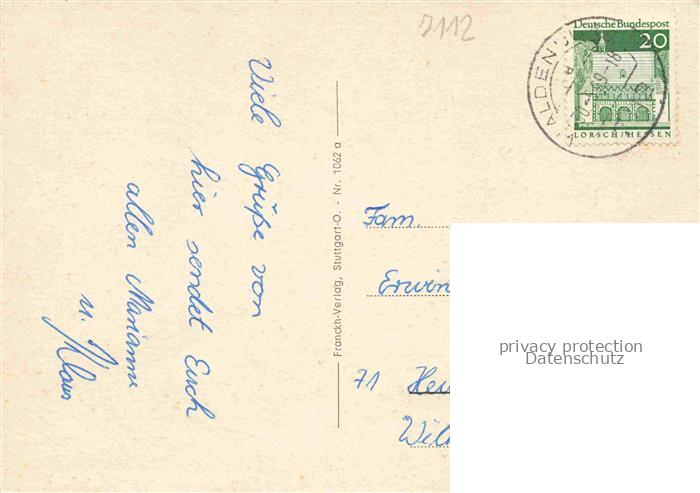 7112
Deutsche Bundespost
20
LORSCH/HESSEN
WALDENB
Viele Grüße von
hier sendet Euch
allen Marianne
u. Klaus
Franckh-Verlag, Stuttgart-O. - Nr. 1062 a
Fam.
Erwin
71 Hei
Wil
privacy protection
Datenschutz